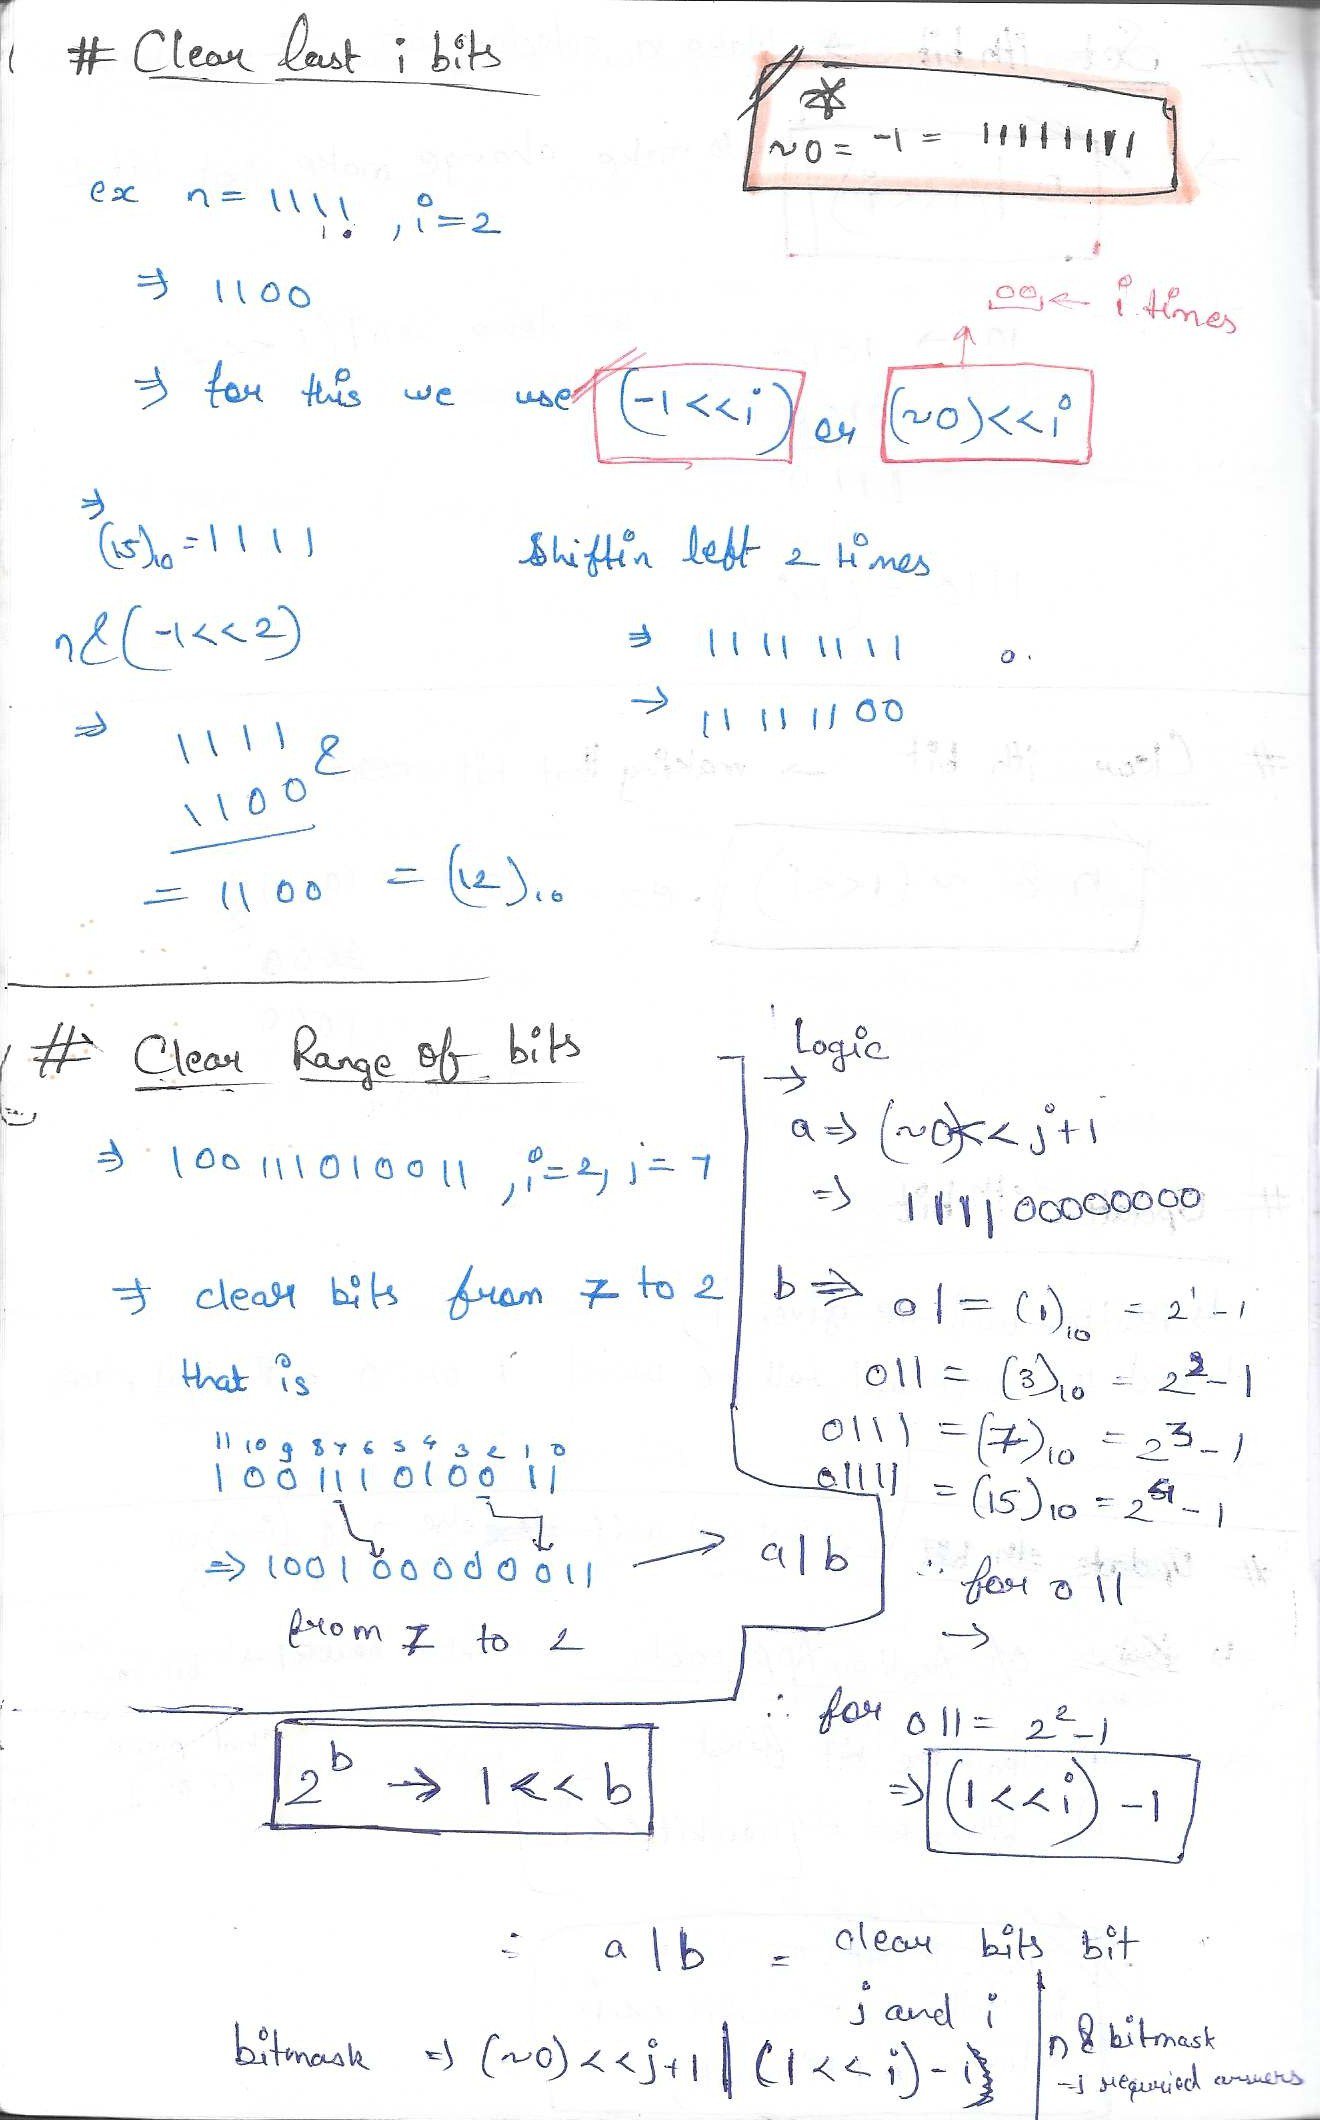 # Clear last i bits
*
~0 = -1 = 11111111
ex n = 1111 , i=2
⇒ 1100
00 ← i times
⇒ for this we use (-1<<i) or (~0)<<i
⇒
(15)10 = 1111
Shiftin left 2 times
n&(-1<<2)
⇒ 11111111 0.
→ 11111100
⇒ 1111 &
1100
= 1100 = (12)10
# Clear Range of bits
⇒ 100111010011 , i=2, j=7
⇒ clear bits from 7 to 2
that is
11 10 9 8 7 6 5 4 3 2 1 0
1 0 0 1 1 1 0 1 0 0 1 1
⇒ 100100000011 → a|b
from 7 to 2
Logic
→
a ⇒ (~0)<< j+1
⇒ 1111100000000
b ⇒ 01 = (1)10 = 2^1 - 1
011 = (3)10 = 2^2 - 1
0111 = (7)10 = 2^3 - 1
01111 = (15)10 = 2^4 - 1
∴ for 011
→
∴ for 011 = 2^2 - 1
⇒ (1<<i) - 1
2^b → 1<<b
= a|b = clear bits bit
j and i
bitmask ⇒ (~0)<<j+1 | (1<<i)-1
n & bitmask
→ requried answers